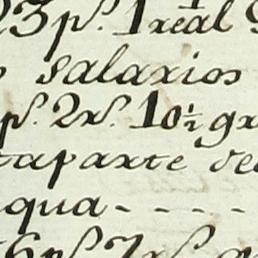 23 pˢ. 1 real
salarios
pˢ. 2 rˢ. 10½ gr
taparte de
qua - - - -
6 pˢ. 7 rˢ.